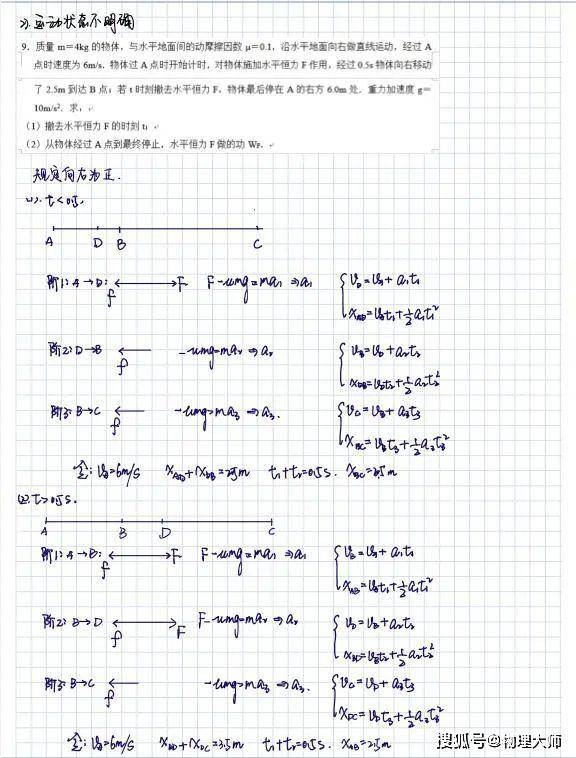 2). 运动状态不明确
9. 质量 m=4kg 的物体，与水平地面间的动摩擦因数 μ=0.1，沿水平地面向右做直线运动，经过 A
点时速度为 6m/s，物体过 A 点时开始计时，对物体施加水平恒力 F 作用，经过 0.5s 物体向右移动
了 2.5m 到达 B 点；若 t 时刻撤去水平恒力 F，物体最后停在 A 的右方 6.0m 处．重力加速度 g=
10m/s²．求：
（1）撤去水平恒力 F 的时刻 t；
（2）从物体经过 A 点到最终停止，水平恒力 F 做的功 WF．
规定向右为正.
(1). t<0.5s
A D B C
阶1: A→D: f F F-μmg=ma₁ ⇒a₁ v_D=v_A+a₁t₁
x_AD=v_At₁+½a₁t₁²
阶2: D→B f -μmg=ma₂ ⇒a₂ v_B=v_D+a₂t₂
x_DB=v_Dt₂+½a₂t₂²
阶3: B→C f -μmg=ma₃ ⇒a₃. v_C=v_B+a₃t₃
x_BC=v_Bt₃+½a₃t₃²
全: v_A=6m/s x_AD+x_DB=2.5m t₁+t₂=0.5s. x_BC=3.5m
(2). t>0.5s.
A B D C
阶1: A→B: f F F-μmg=ma₁ ⇒a₁ v_B=v_A+a₁t₁
x_AB=v_At₁+½a₁t₁²
阶2: B→D f F F-μmg=ma₂ ⇒a₂ v_D=v_B+a₂t₂
x_BD=v_Bt₂+½a₂t₂²
阶3: B→C f -μmg=ma₃ ⇒a₃. v_C=v_D+a₃t₃
x_DC=v_Dt₃+½a₃t₃²
全: v_A=6m/s x_BD+x_DC=3.5m t₁+t₂=0.5s. x_AB=2.5m
搜狐号@物理大师